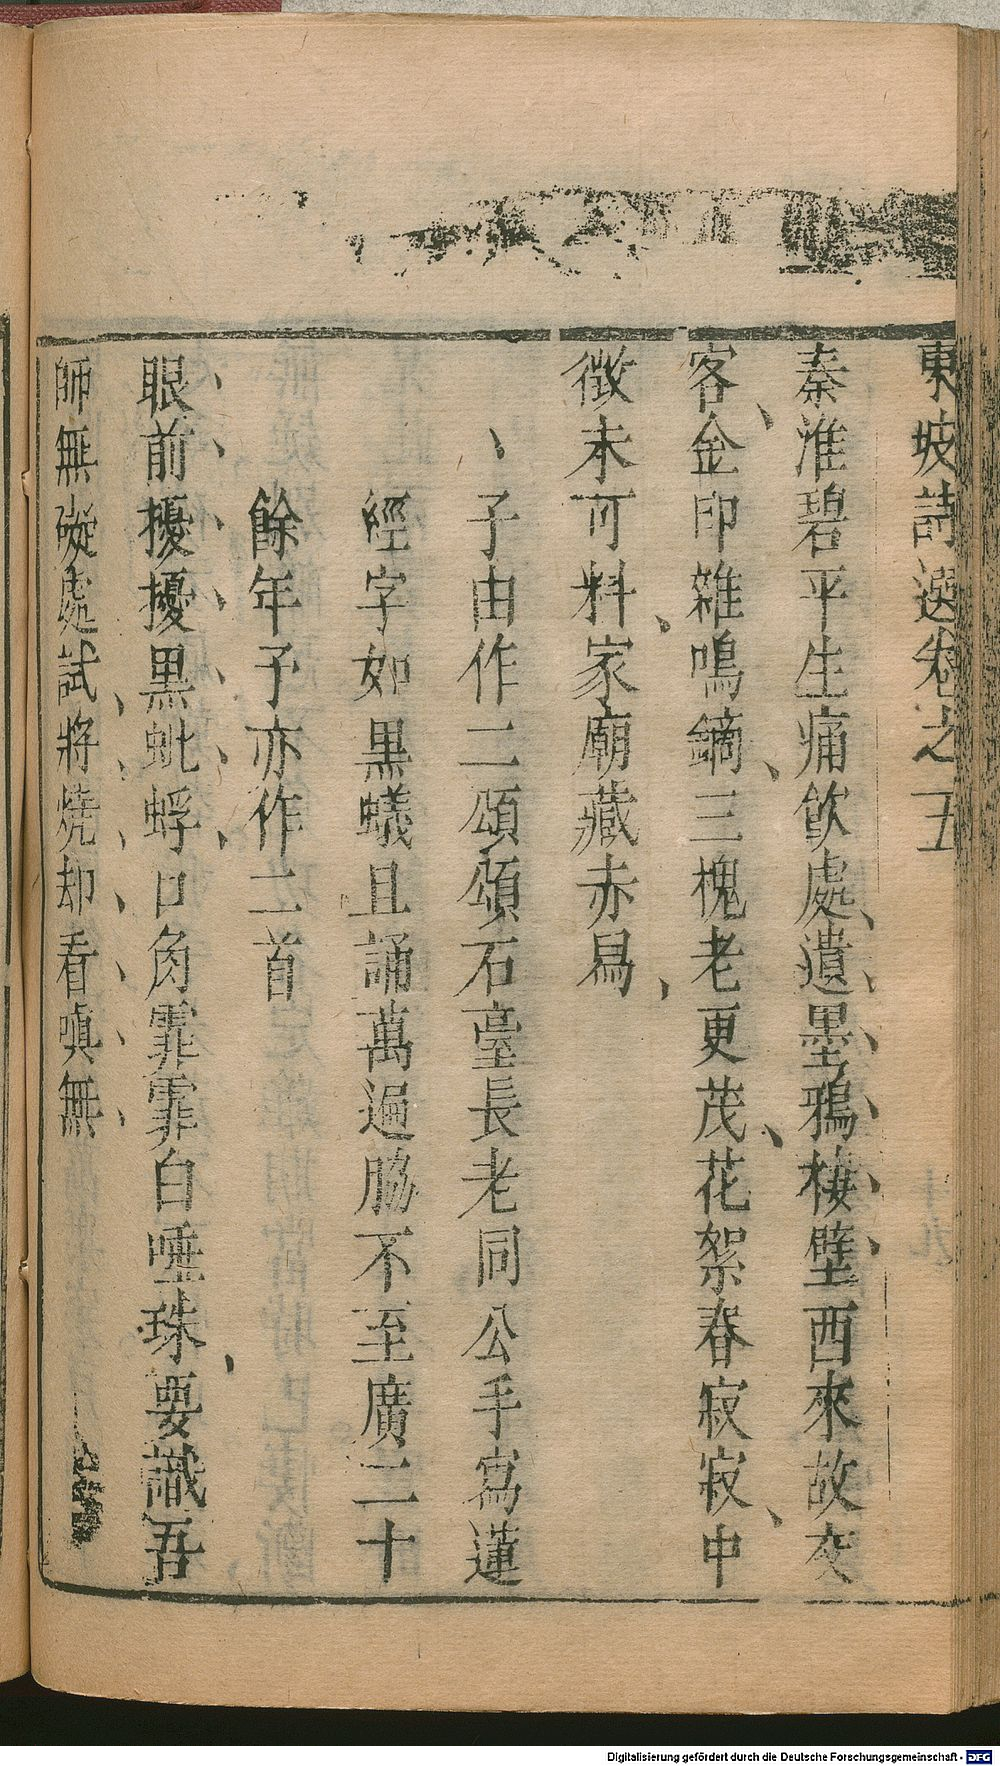 東坡詩選卷之五
秦淮碧平生痛飲處遺墨鴉棲壁西來故交
客金印雜鳴鏑三槐老更茂花絮春寂寂中
微未可料家廟藏赤舄
子由作二頌頌石臺長老同公手寫蓮
經字如黑蟻且誦萬遍脇不至廣二十
餘年予亦作二首
眼前擾擾黑蚍蜉口角霏霏白唾珠要識吾
師無礙處試將燒却看嗔無
Digitalisierung gefördert durch die Deutsche Forschungsgemeinschaft - DFG